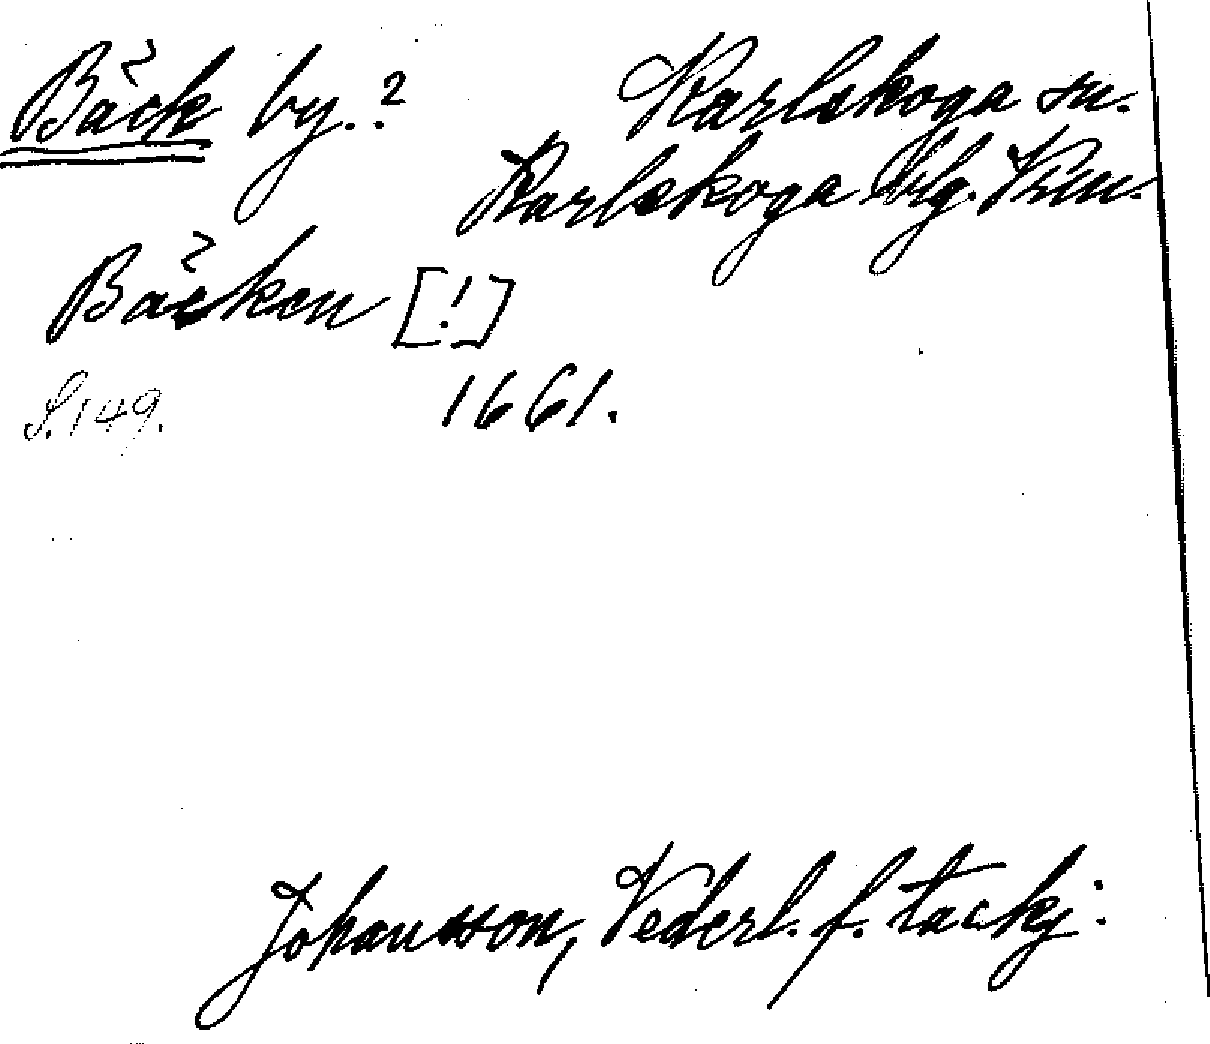 Bäck by.?
Karlskoga sn.
Karlskoga blg. Vrm.
Bäcken [!]
S. 149.
1661.
Johansson, Vederl. f. tackj: